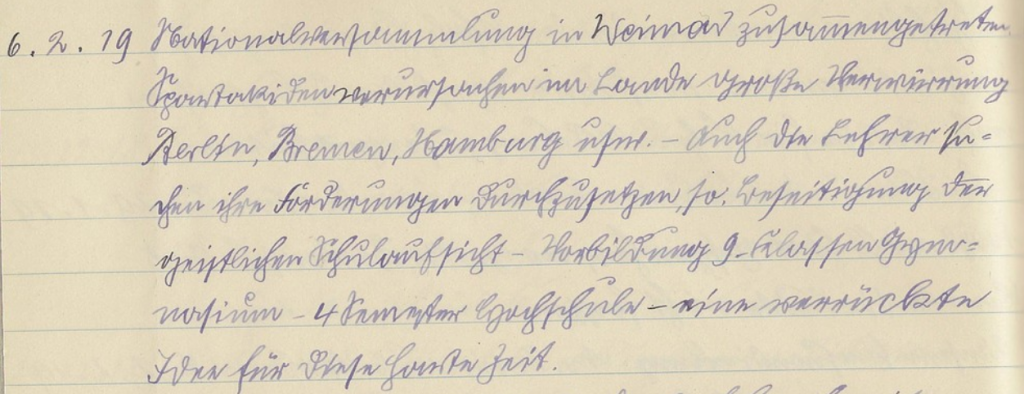 6. 2. 19 Nationalversammlung in Weimar zusammengetreten
Spartakiden verursachen im Lande große Verwirrung
Berlin, Bremen, Hamburg usw. – Auch die Lehrer su-
chen ihre Forderungen durchzusetzen, so. Beseitigung der
geistlichen Schulaufsicht – Vorbildung 9-Klassen Gym-
nasium – 4 Semester Hochschule – eine verrückte
Idee für diese harte Zeit.